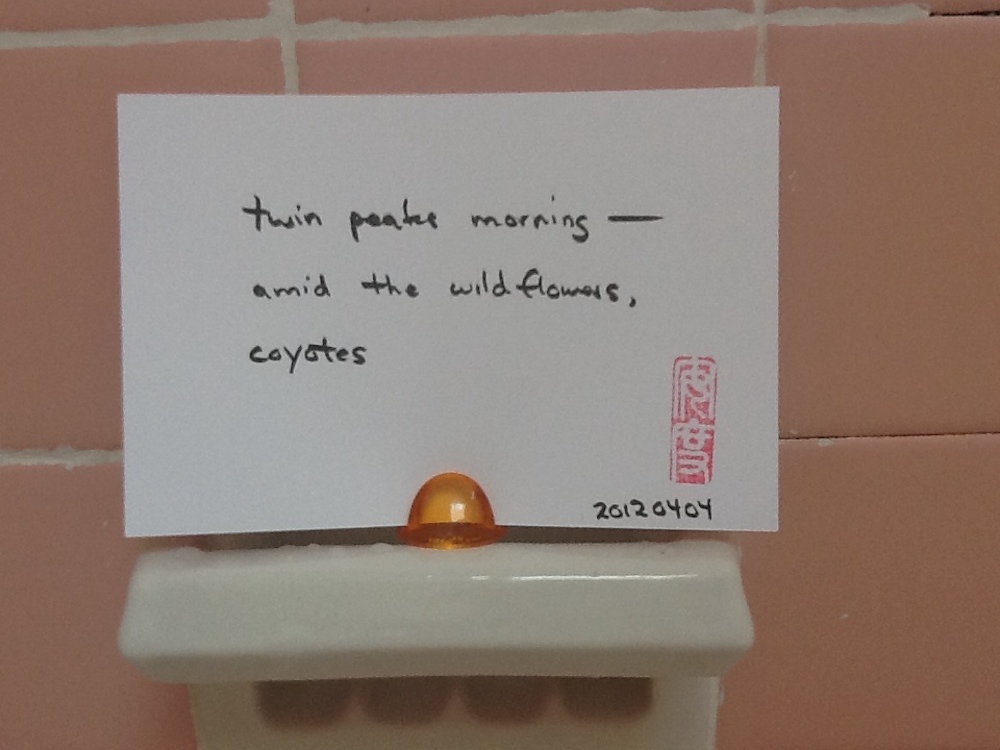 twin peaks morning —
amid the wildflowers,
coyotes
20120404